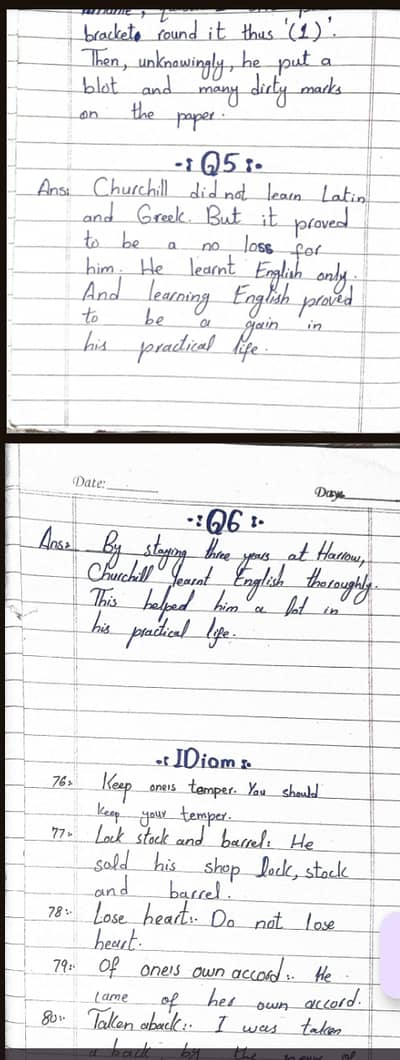 brackets round it thus '(1)'.
Then, unknowingly, he put a
blot and many dirty marks
on the paper.
-: Q5 :-
Ans: Churchill did not learn Latin
and Greek. But it proved
to be a no loss for
him. He learnt English only.
And learning English proved
to be a gain in
his practical life.
Date:
Day
-: Q6 :-
Ans: By staying three years at Harrow,
Churchill learnt English thoroughly.
This helped him a lot in
his practical life.
-: IDiom :-
76: Keep oneis temper. You should
keep your temper.
77: Lock stock and barrel: He
sold his shop lock, stock
and barrel.
78:- Lose heart:. Do not lose
heart.
79:- Of oneis own accord:. He
came of her own accord.
80:- Taken aback:. I was taken
a back by the